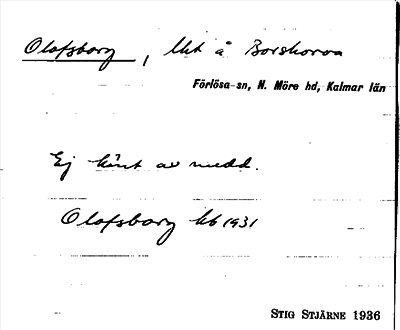 Olofsborg, lht å Borshorva
Förlösa-sn, N. Möre hd, Kalmar län
Ej känt av medd.
Olofsborg kb 1931
STIG STJÄRNE 1936